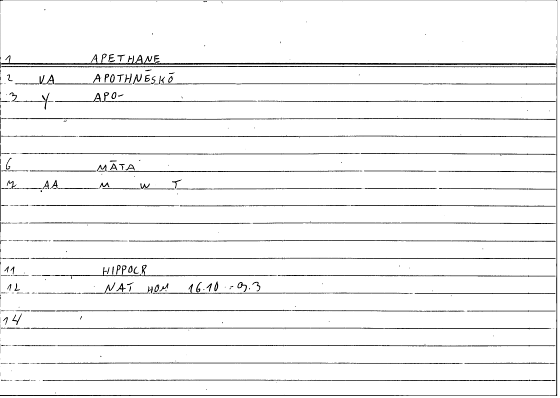 1 APETHANE
2 VA APOTHNĒSKŌ
3 Y APO-
6 MĀTA
7 AA M W T
11 HIPPOCR
12 NAT HOM 16.10 -9.3
14